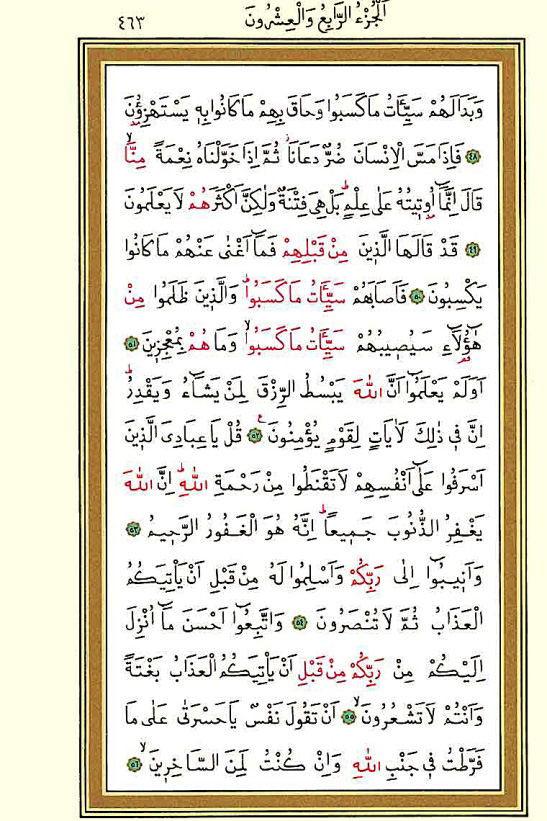 اَلْجُزْءُ الرَّابِعُ وَالْعِشْرُونَ ٤٦٣
وَبَدَا لَهُمْ سَيِّـَٔاتُ مَا كَسَبُوا وَحَاقَ بِهِمْ مَا كَانُوا بِهٖ يَسْتَهْزِؤُ۫نَ
﴿٤٨﴾ فَاِذَا مَسَّ الْاِنْسَانَ ضُرٌّ دَعَانَاۘ ثُمَّ اِذَا خَوَّلْنَاهُ نِعْمَةً مِنَّاۙ
قَالَ اِنَّمَٓا اُو۫تٖيتُهُ عَلٰى عِلْمٍۜ بَلْ هِيَ فِتْنَةٌ وَلٰكِنَّ اَكْثَرَهُمْ لَا يَعْلَمُونَ
﴿٤٩﴾ قَدْ قَالَهَا الَّذٖينَ مِنْ قَبْلِهِمْ فَمَٓا اَغْنٰى عَنْهُمْ مَا كَانُوا
يَكْسِبُونَ ﴿٥٠﴾ فَاَصَابَهُمْ سَيِّـَٔاتُ مَا كَسَبُواۜ وَالَّذٖينَ ظَلَمُوا مِنْ
هٰٓؤُ۬لَٓاءِ سَيُصٖيبُهُمْ سَيِّـَٔاتُ مَا كَسَبُواۙ وَمَا هُمْ بِمُعْجِزٖينَ ﴿٥١﴾
اَوَلَمْ يَعْلَمُٓوا اَنَّ اللّٰهَ يَبْسُطُ الرِّزْقَ لِمَنْ يَشَٓاءُ وَيَقْدِرُۜ
اِنَّ فٖي ذٰلِكَ لَاٰيَاتٍ لِقَوْمٍ يُؤْمِنُونَ ﴿٥٢﴾ قُلْ يَا عِبَادِيَ الَّذٖينَ
اَسْرَفُوا عَلٰٓى اَنْفُسِهِمْ لَا تَقْنَطُوا مِنْ رَحْمَةِ اللّٰهِۜ اِنَّ اللّٰهَ
يَغْفِرُ الذُّنُوبَ جَمٖيعاًۜ اِنَّهُ هُوَ الْغَفُورُ الرَّحٖيمُ ﴿٥٣﴾
وَاَنٖيبُٓوا اِلٰى رَبِّكُمْ وَاَسْلِمُوا لَهُ مِنْ قَبْلِ اَنْ يَأْتِيَكُمُ
الْعَذَابُ ثُمَّ لَا تُنْصَرُونَ ﴿٥٤﴾ وَاتَّبِعُٓوا اَحْسَنَ مَٓا اُنْزِلَ
اِلَيْكُمْ مِنْ رَبِّكُمْ مِنْ قَبْلِ اَنْ يَأْتِيَكُمُ الْعَذَابُ بَغْتَةً
وَاَنْتُمْ لَا تَشْعُرُونَۙ ﴿٥٥﴾ اَنْ تَقُولَ نَفْسٌ يَا حَسْرَتٰى عَلٰى مَا
فَرَّطْتُ فٖي جَنْبِ اللّٰهِ وَاِنْ كُنْتُ لَمِنَ السَّاخِرٖينَۙ ﴿٥٦﴾